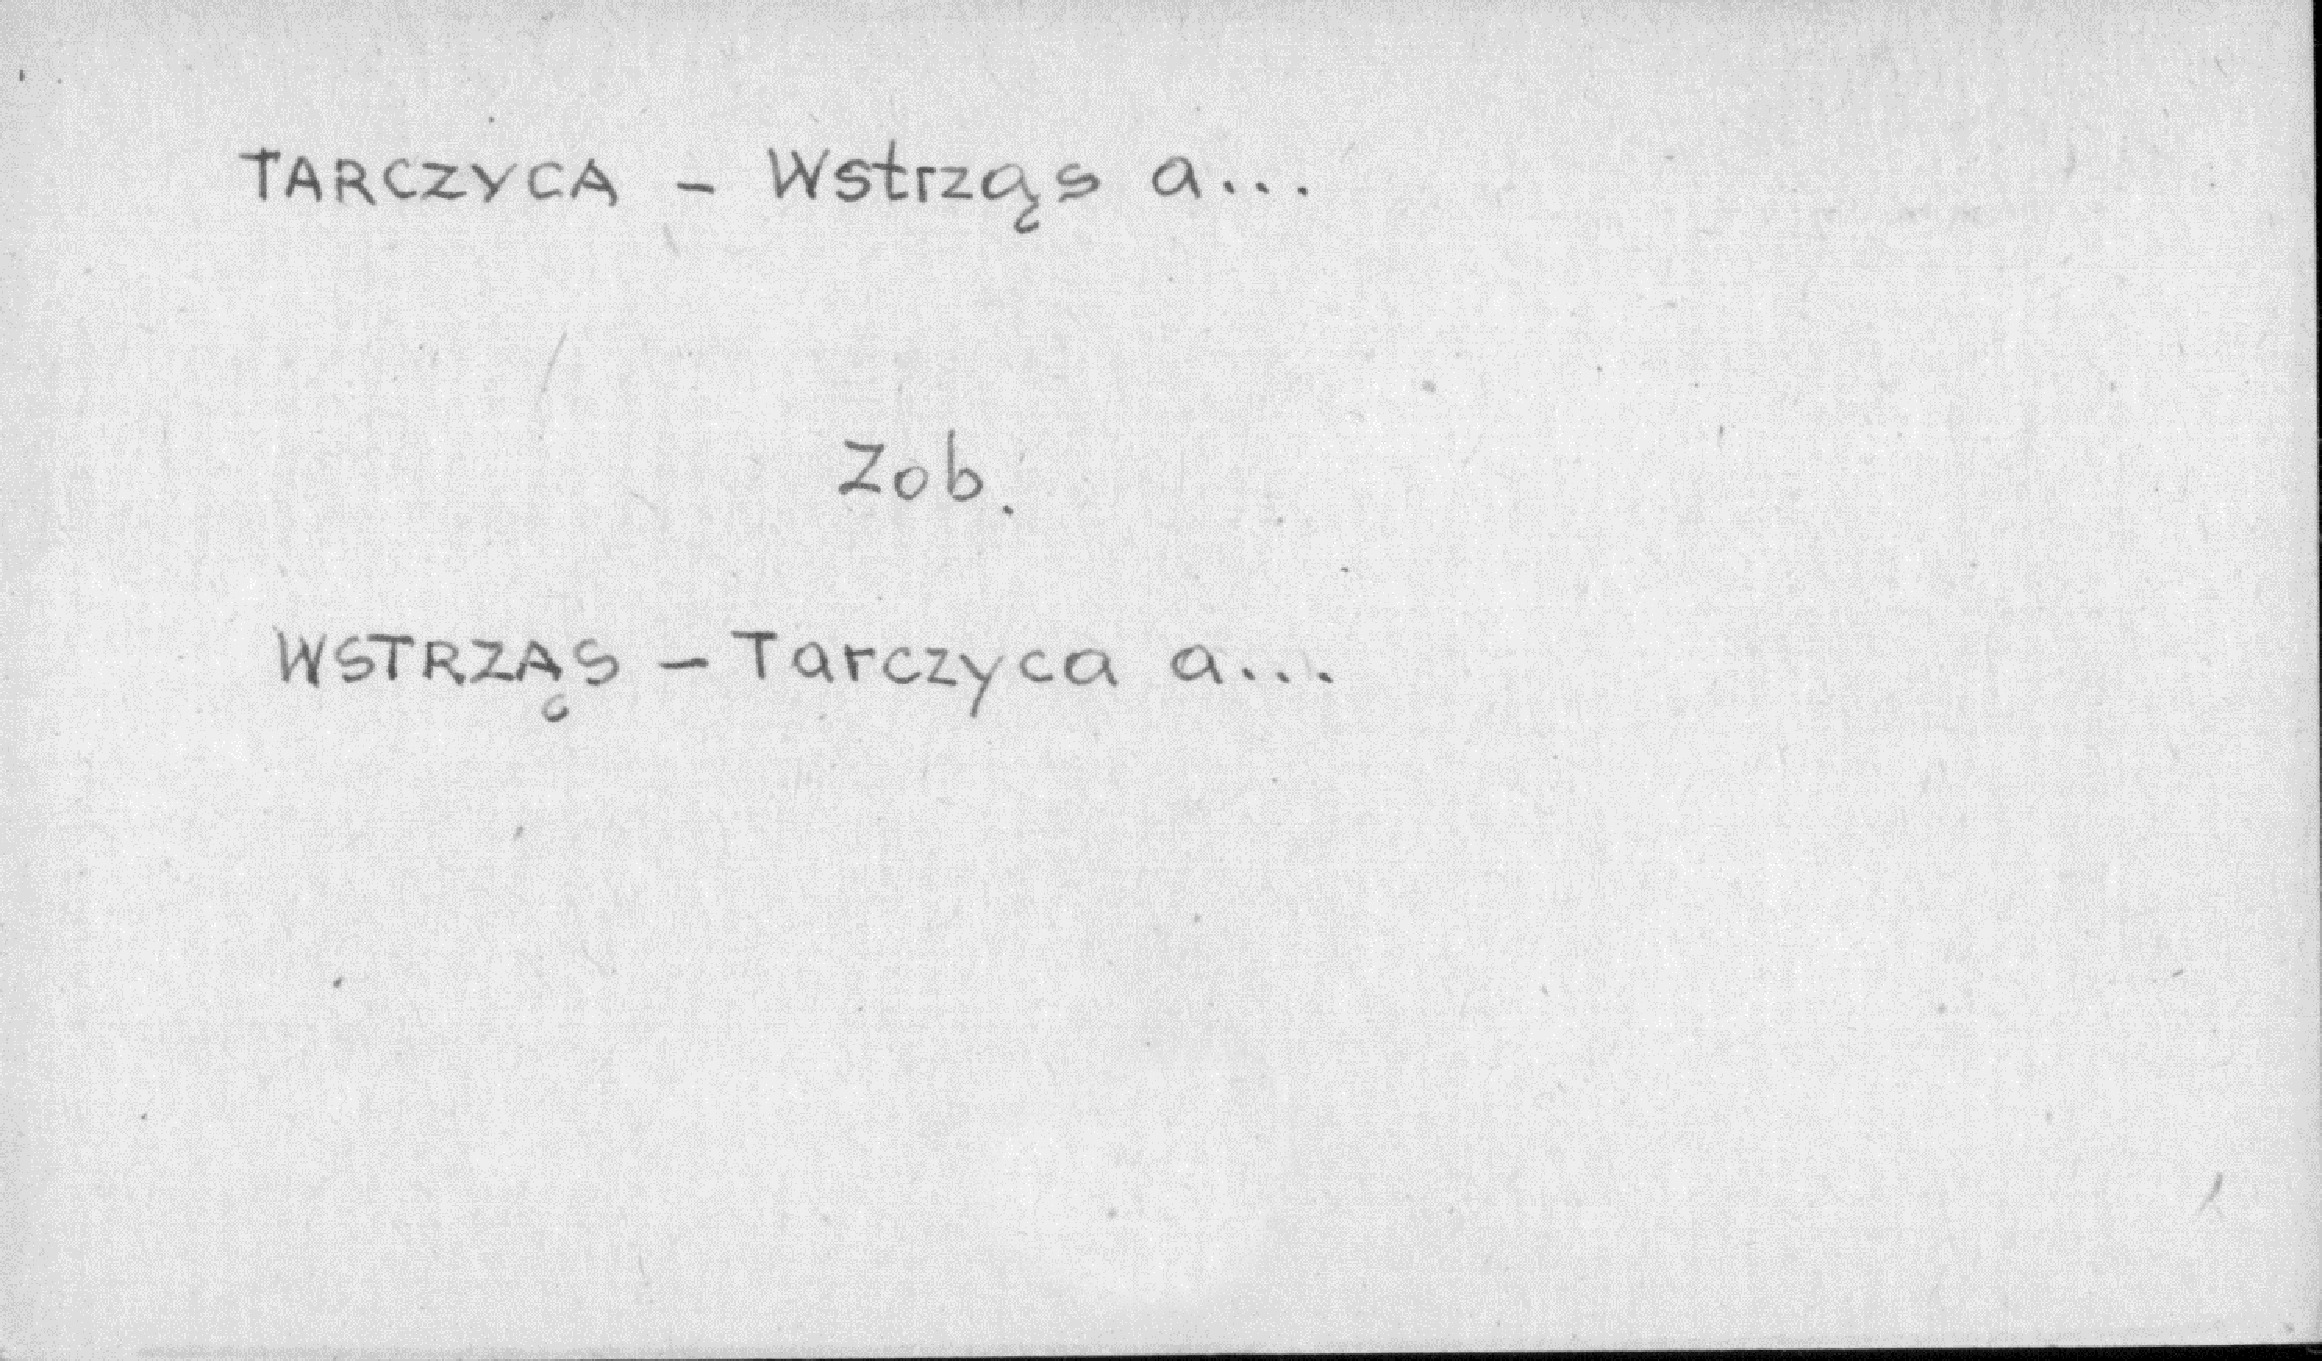 TARCZYCA - Wstrząs a...
Zob.
WSTRZĄS - Tarczyca a...